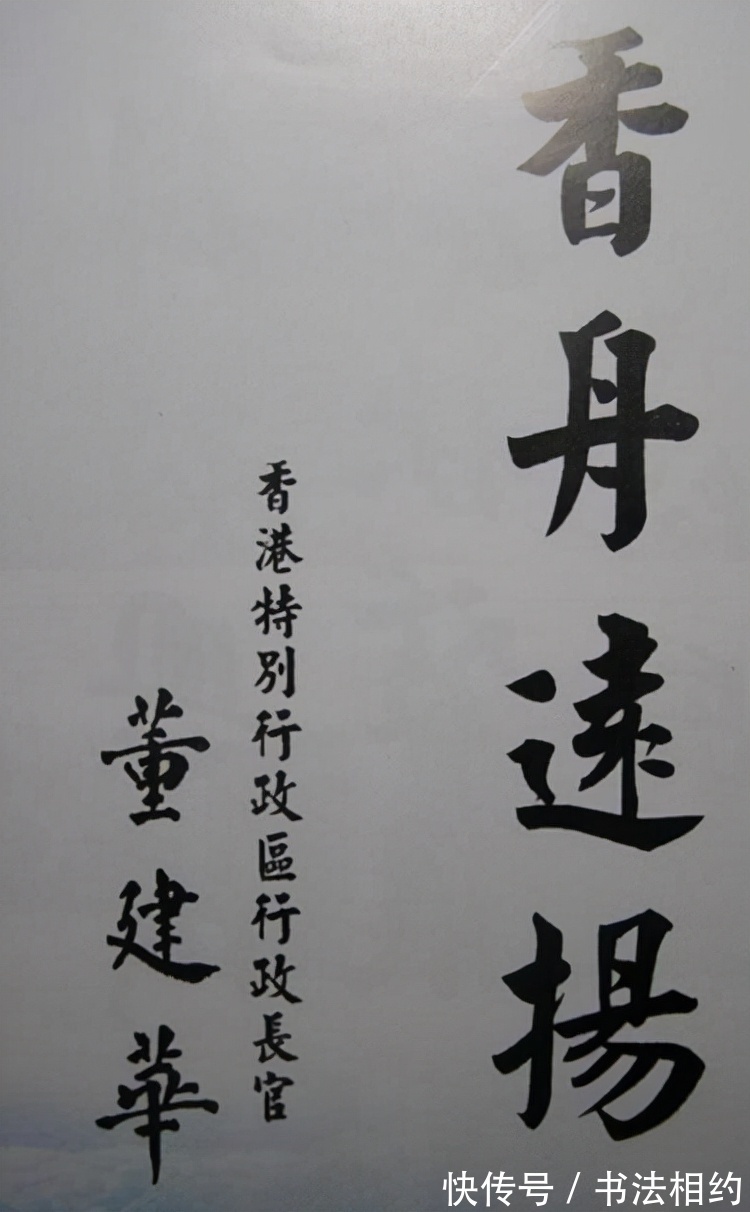 香舟遠揚
香港特別行政區行政長官
董建華
快传号 / 书法相约